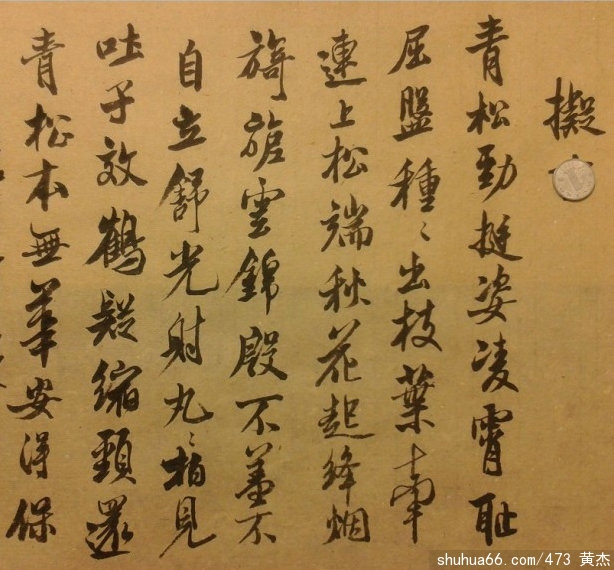 擬
青松勁挺姿凌霄耻
屈盤種〻出枝葉牽
連上松端秋花起絳烟
旖旎雲錦殷不羞不
自立舒光射丸〻柏見
吐子效鶴疑縮頸還
青松本無華安得保
shuhua66.com/473 黄杰